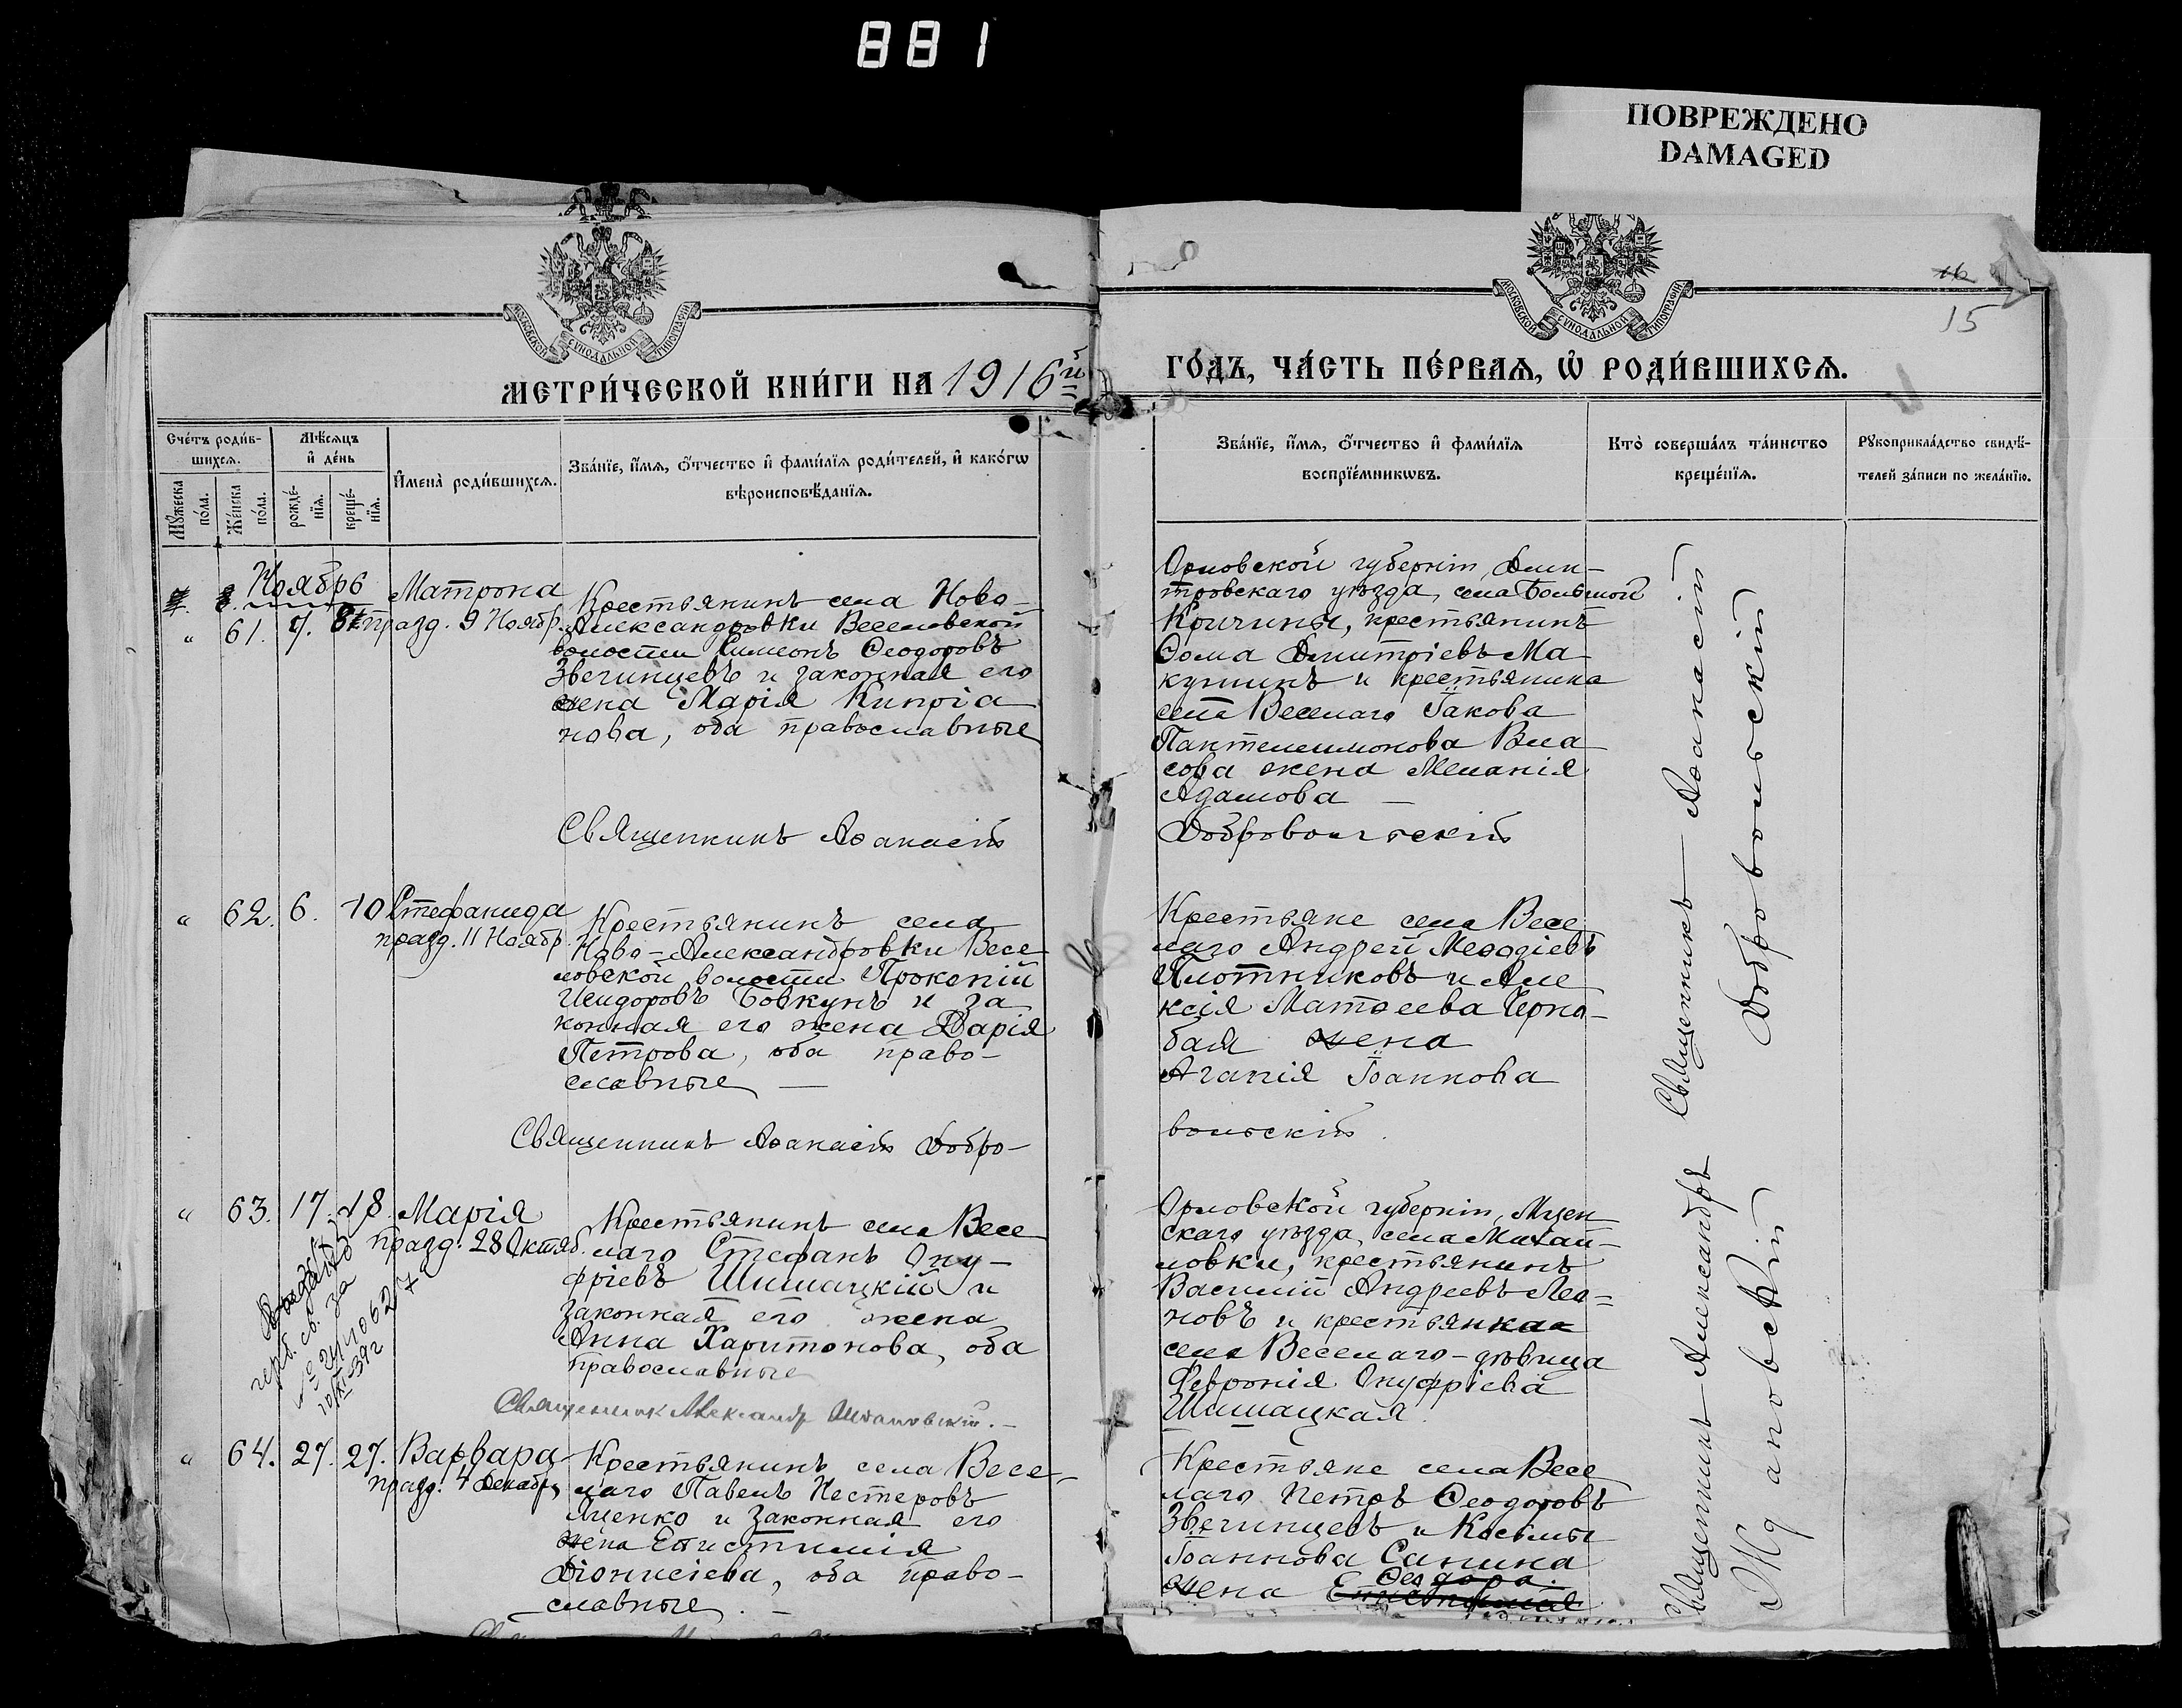 881
ПОВРЕЖДЕНО
DAMAGED
МОСКОВСКОЙ СѴНОДАЛЬНОЙ ТИПОГРАФІИ
МОСКОВСКОЙ СѴНОДАЛЬНОЙ ТИПОГРАФІИ
15
МЕТРИ́ЧЕСКОЙ КНИ́ГИ НА 1916й
ГО́ДЪ, ЧА́СТЬ ПЕ́РВАѦ, Ѡ҆ РОДИ́ВШИХСѦ.
Сче́тъ роди́в-
шихсѧ.
Мѣ́сѧцъ
и҆ де́нь
Мꙋ́жеска
по́ла.
Же́нска
по́ла.
рожде́-
нїѧ.
креще́-
нїѧ.
И҆мена̀ роди́вшихсѧ.
Зва́нїе, и҆́мѧ, ѻ҆́тчество и҆ фами́лїѧ роди́телей, и҆ како́гѡ
вѣроисповѣ́данїѧ.
Зва́нїе, и҆́мѧ, ѻ҆́тчество и҆ фами́лїѧ
воспрїе́мникѡвъ.
Кто̀ соверша́лъ та́инство
креще́нїѧ.
Рꙋкоприкла́дство свидѣ́-
телей за́писи по жела́нїю.
Ноябрь
" 61. 7. 8
Матрона
празд. 9 Ноябр.
Крестьянинъ села Ново-
Александровки Веселовской
волости Симеонъ Ѳеодоровъ
Звегинцевъ и законная его
жена Марія Кипріа
нова, оба православные
Священникъ Аѳанасій
Орловской губерніи, Дми-
тровскаго уѣзда, села Большой
Кричины, крестьянинъ
Ѳома Дмитріевъ Ма-
кушинъ и крестьянина
села Веселаго Іакова
Пантелеимонова Вла
сова жена Меланія
Адамова —
Добровольскій
Священникъ — Аѳанасій
Добровольскій
" 62. 6. 10
Стефанида
празд. 11 Ноябр.
Крестьянинъ села
Ново-Александровки Весе
ловской волости Прокопій
Исидоровъ Бовкунъ и за
конная его жена Дарія
Петрова, оба право-
славные —
Священникъ Аѳанасій Добро-
Крестьяне села Весе
лаго Андрей Меѳодіевъ
Плотниковъ и Але
ксія Матѳеева Черно-
бая жена
Агапія Іоаннова
вольскій.
" 63. 17. 18.
Марія
празд. 28 Октяб.
Крестьянинъ села Весе
лаго Стефанъ Ону-
фріевъ Шишацкій и
законная его жена
Анна Харитонова, оба
православные
Священник Александр Ждановский. —
Орловской губерніи, Мцен
скаго уѣзда, села Михай-
ловки, крестьянинъ
Василій Андреевъ Лео-
новъ и крестьянка
села Веселаго — дѣвица
Февронія Онуфріева
Шишацкая.
Священникъ — Александръ
Ждановскій
" 64. 27. 27.
Варвара
празд. 4 Декабр.
Крестьянинъ села Весе-
лаго Павелъ Нестеровъ
Яценко и законная его
жена Епистимія
Діонисіева, оба право-
славные. —
Крестьяне села Весе
лаго Петръ Ѳеодоровъ
Звегинцевъ и Косьмы
Іоаннова Санина
Ѳеодора
жена